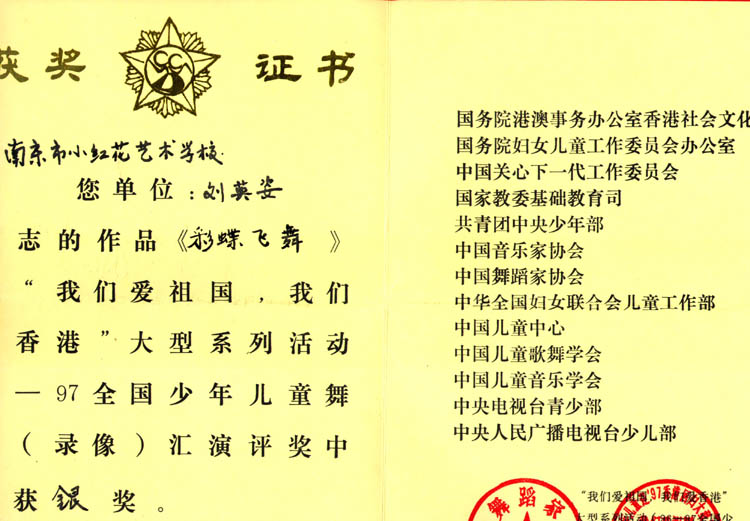 获奖 证书
南京市小红花艺术学校
您单位：刘英姿
志的作品《彩蝶飞舞》
“我们爱祖国，我们
香港”大型系列活动
—97全国少年儿童舞
（录像）汇演评奖中
获银奖。
国务院港澳事务办公室香港社会文化
国务院妇女儿童工作委员会办公室
中国关心下一代工作委员会
国家教委基础教育司
共青团中央少年部
中国音乐家协会
中国舞蹈家协会
中华全国妇女联合会儿童工作部
中国儿童中心
中国儿童歌舞学会
中国儿童音乐学会
中央电视台青少部
中央人民广播电视台少儿部
舞蹈家
“我们爱祖国，我们爱香港”